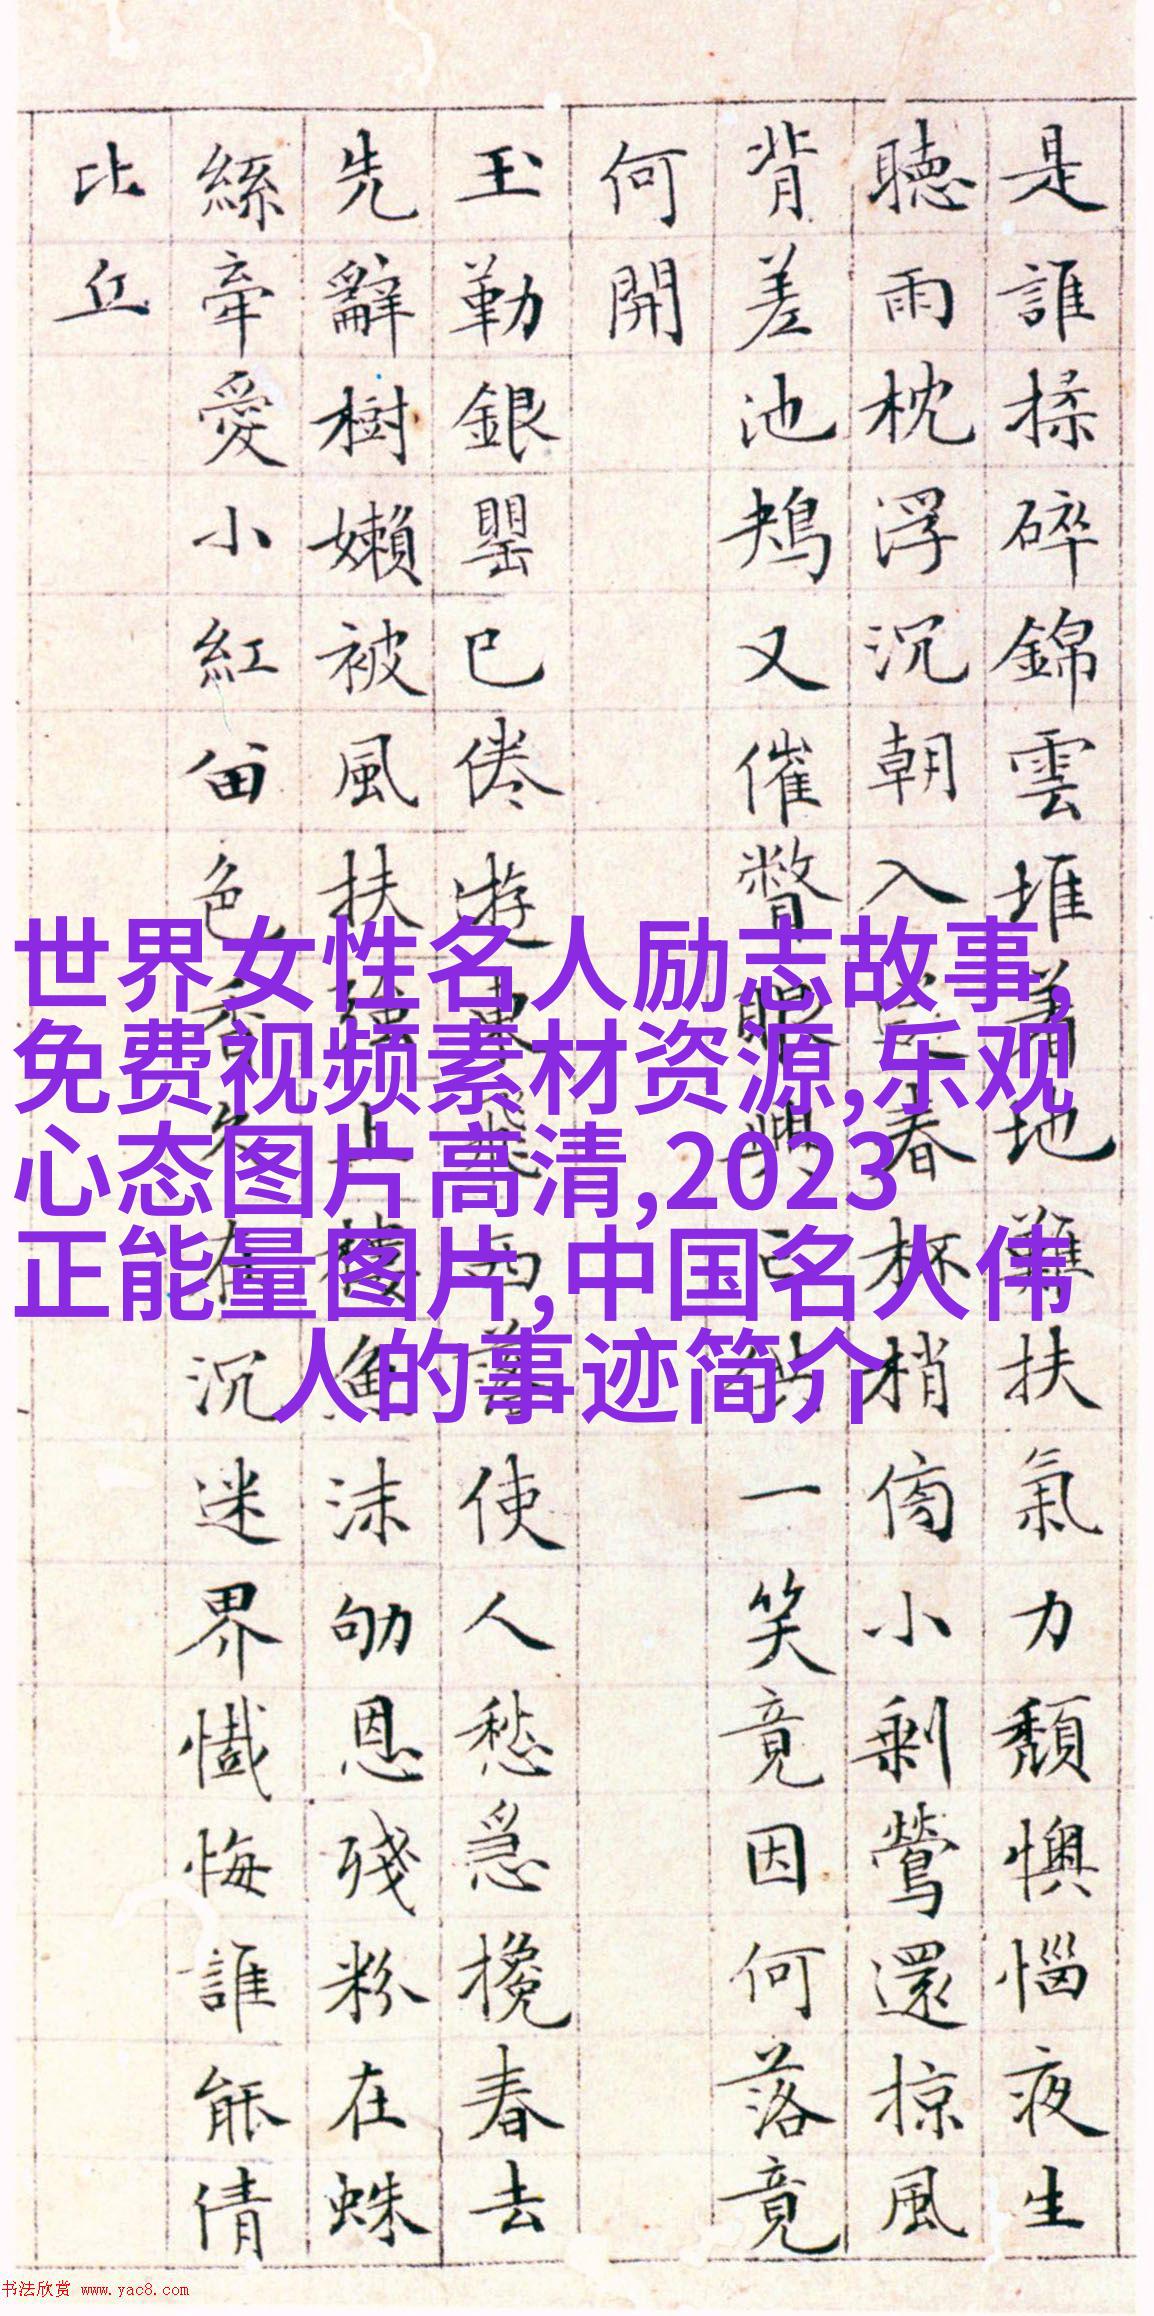 是誰揉碎錦雲堆着地難扶氣力頹懊惱夜生
聽雨枕浮沉朝入春杯梢傍小剩鶯還掠風
背差池鴂又催瞥眼興亡供一笑竟因何落竟
何開
玉勒銀罌已倦遊東飛西落使人愁急攙春去
先辭樹嬾被風扶強上樓魚沫劬恩殘粉在蛛
絲牽愛小紅留色香久在沉迷界懺悔誰能倩
比丘
世界女性名人励志故事,
免费视频素材资源,乐观
心态图片高清,2023
正能量图片,中国名人伟
人的事迹简介
书法欣赏 www.yac8.com